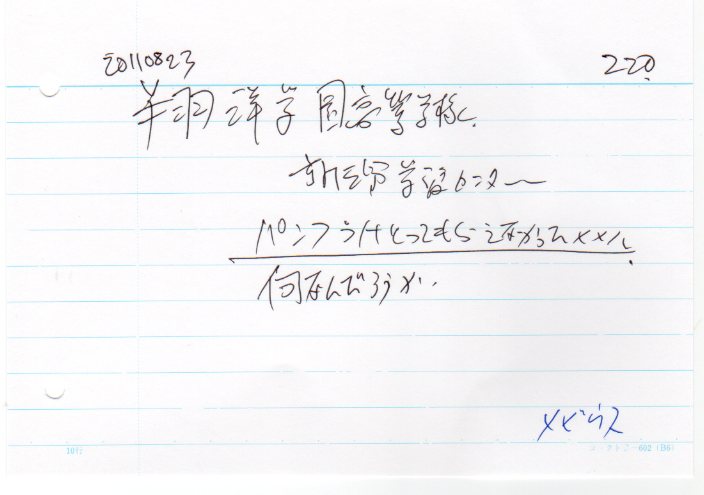 20110823
220.
羊羽洋学園高等学校.
新宿学習センター
パンフうけとってもらえなかった
何なんだろうか.
メビウス
10行
コレクト C-602 (B6)